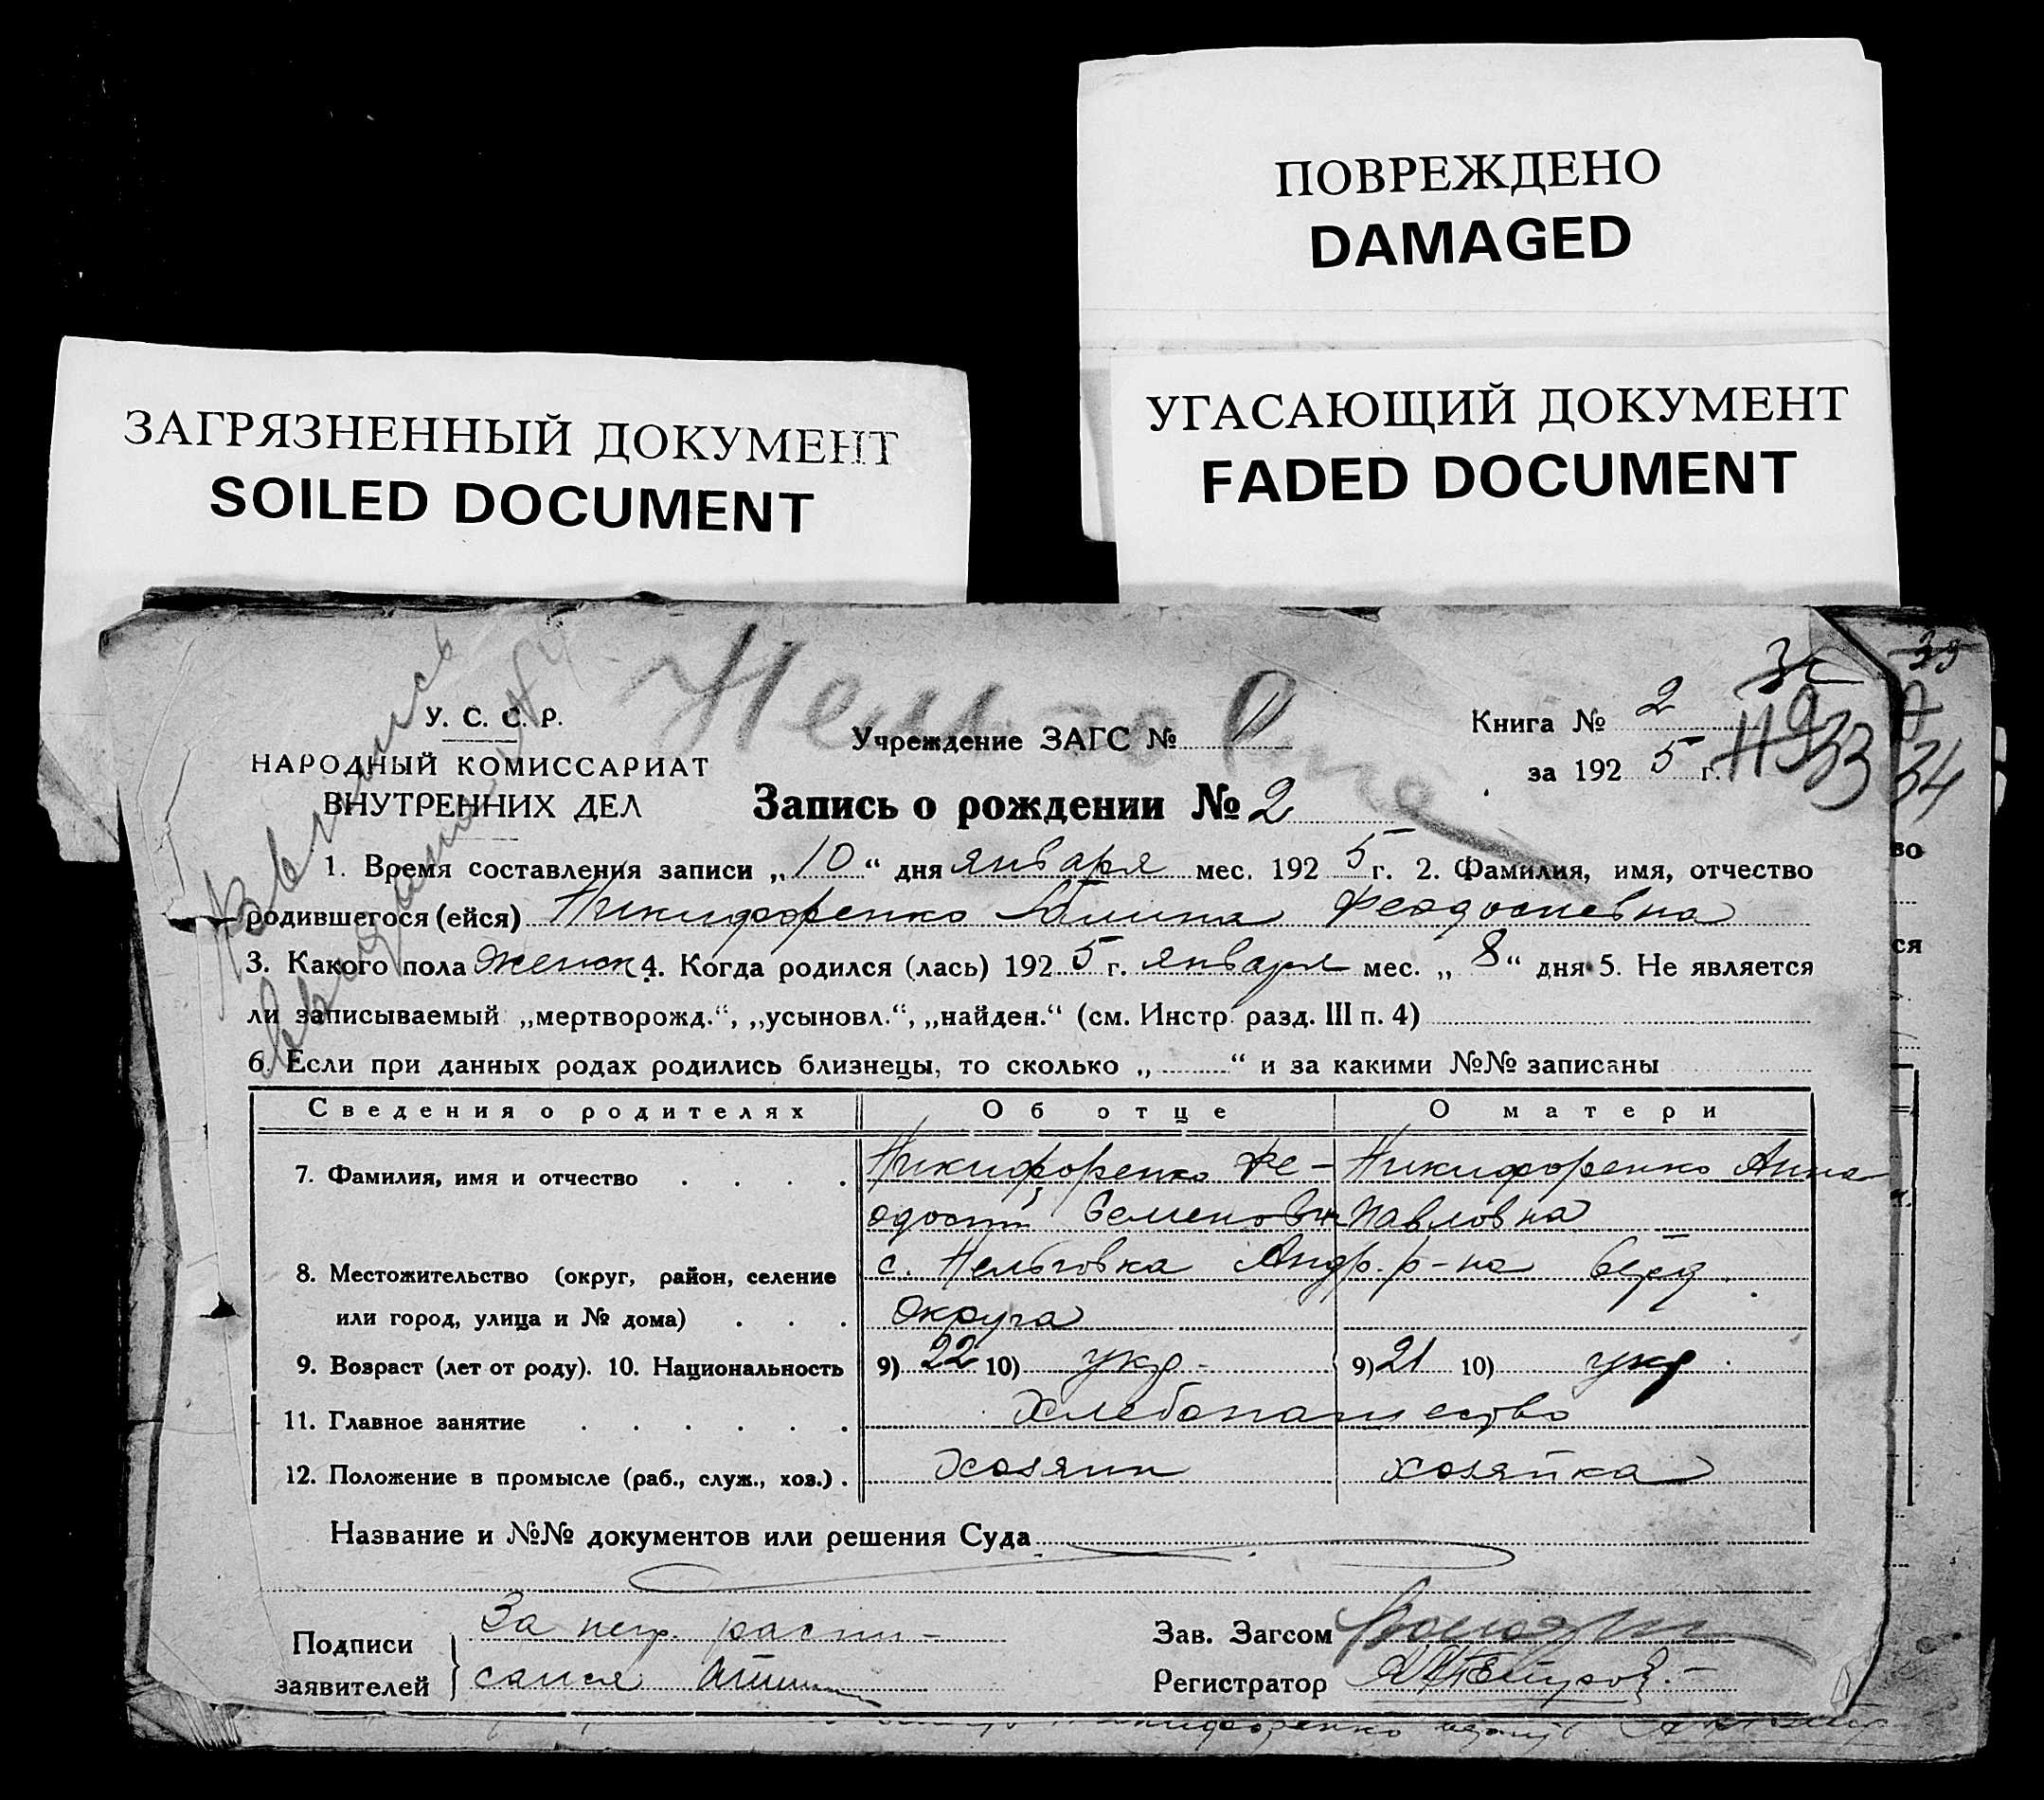 ПОВРЕЖДЕНО
DAMAGED
ЗАГРЯЗНЕННЫЙ ДОКУМЕНТ
SOILED DOCUMENT
УГАСАЮЩИЙ ДОКУМЕНТ
FADED DOCUMENT
35
34
33
У. С. С. Р.
НАРОДНЫЙ КОМИССАРИАТ
ВНУТРЕННИХ ДЕЛ
Учреждение ЗАГС №
Книга № 2
за 1925 г.
Запись о рождении № 2
1. Время составления записи „10“ дня января мес. 1925 г. 2. Фамилия, имя, отчество
родившегося (ейся) Никифоренко Феодосиевна
3. Какого пола женск 4. Когда родился (лась) 1925 г. января мес. „8“ дня 5. Не является
ли записываемый „мертворожд.“, „усыновл.“, „найден.“ (см. Инстр. разд. III п. 4)
6. Если при данных родах родились близнецы, то сколько „ “ и за какими №№ записаны
Сведения о родителях Об отце О матери
7. Фамилия, имя и отчество Никифоренко Фе- Никифоренко Анна
одосий Семенович Павловна
8. Местожительство (округ, район, селение с. Нельговка Андр. р-на Берд.
или город, улица и № дома) округа
9. Возраст (лет от роду). 10. Национальность 9) 22 10) укр 9) 21 10) укр.
11. Главное занятие Хлебопашество
12. Положение в промысле (раб., служ., хоз.) Хозяин хозяйка
Название и №№ документов или решения Суда
Подписи За негр. распи-
заявителей сался
Зав. Загсом
Регистратор